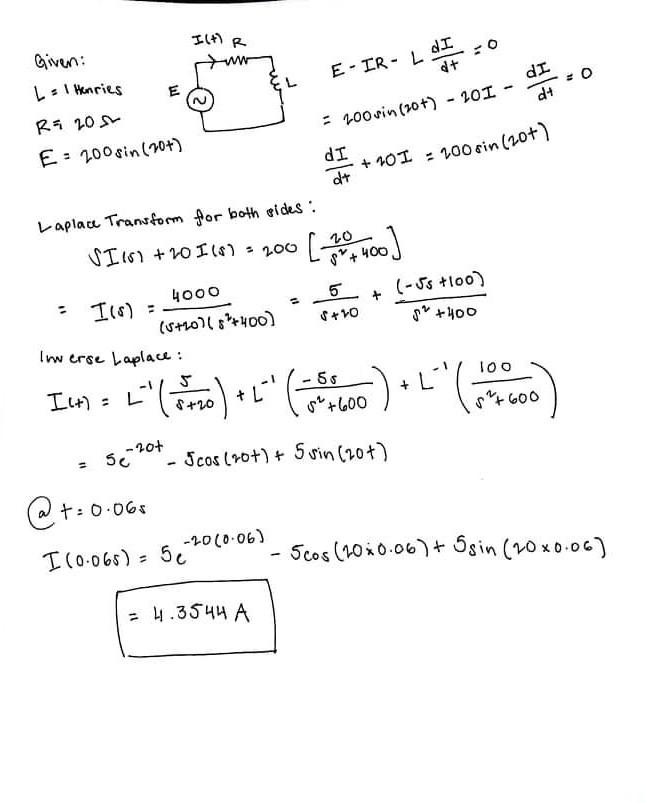 Given:
L = 1 Henries
R = 20 Ω
E = 200sin(20t)
I(t) R
E
L
E - IR - L dI/dt = 0
= 200sin(20t) - 20I - dI/dt = 0
dI/dt + 20I = 200sin(20t)
Laplace Transform for both sides:
SI(s) + 20I(s) = 200 [20/s²+400]
= I(s) = 4000/(s+20)(s²+400) = 5/s+20 + (-5s+100)/s²+400
Inverse Laplace:
I(t) = L⁻¹(5/s+20) + L⁻¹(-5s/s²+600) + L⁻¹(100/s²+600)
= 5e^-20t - 5cos(20t) + 5sin(20t)
@ t = 0.06s
I(0.06s) = 5e^-20(0.06) - 5cos(20x0.06) + 5sin(20x0.06)
= 4.3544 A